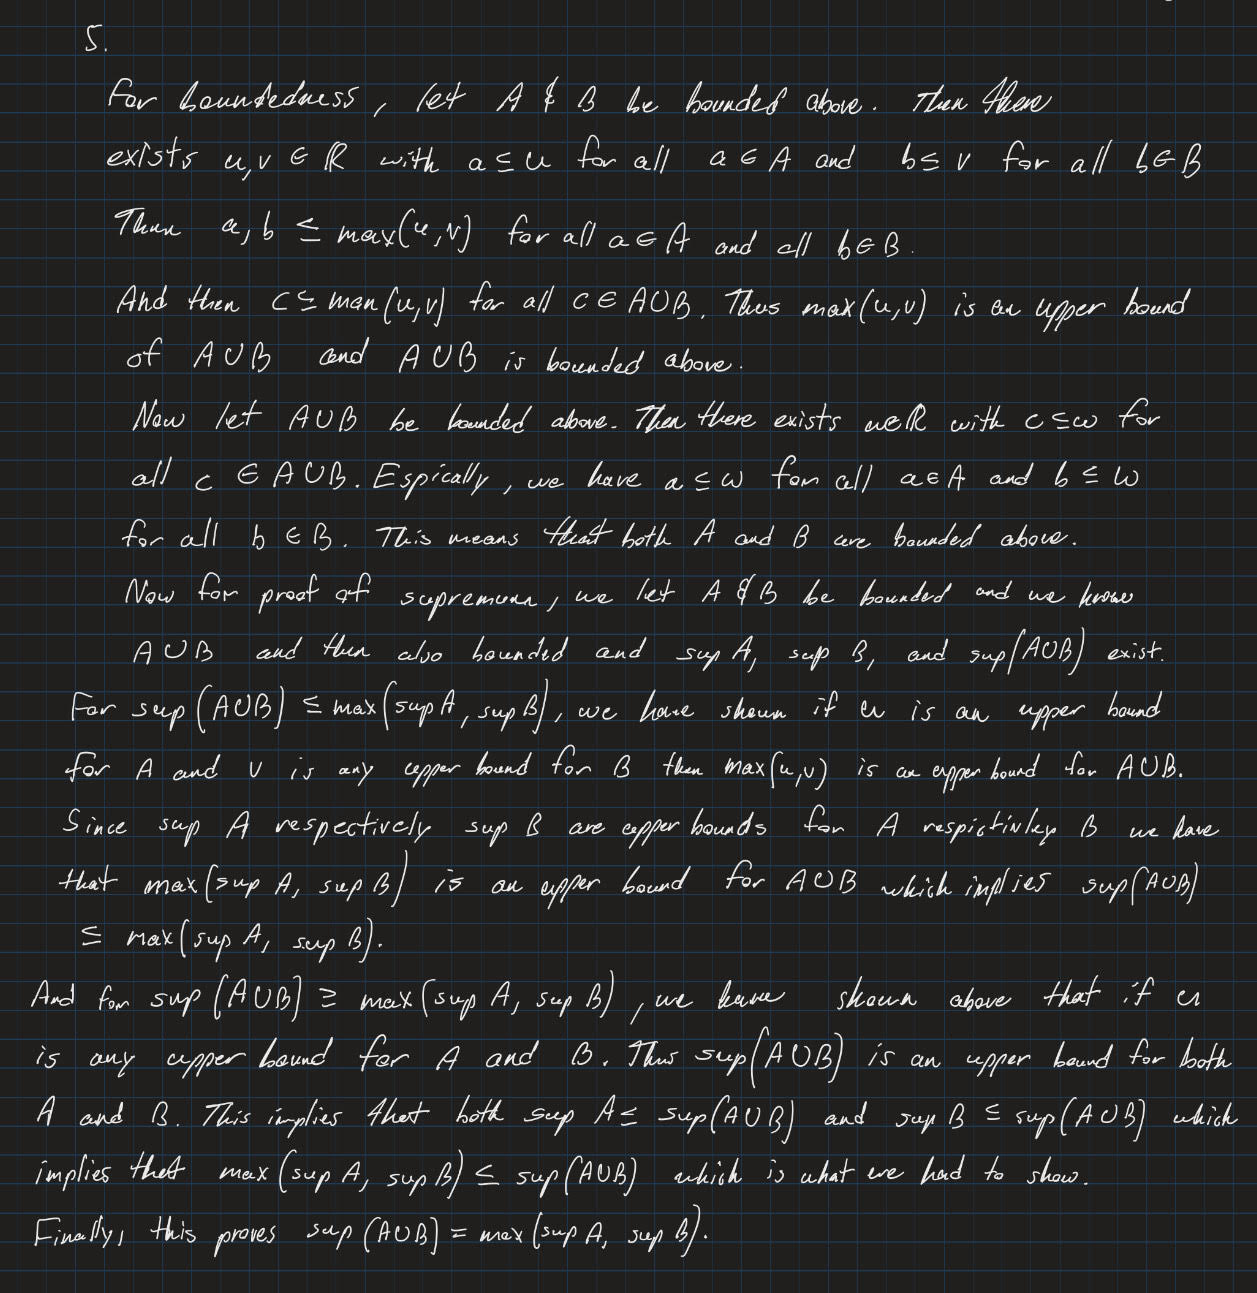 5.
For boundedness, let A & B be bounded above. Then there
exists u,v ∈ ℝ with a ≤ u for all a ∈ A and b ≤ v for all b ∈ B
Then a,b ≤ max(u,v) for all a ∈ A and all b ∈ B.
And then c ≤ max(u,v) for all c ∈ A∪B. Thus max(u,v) is an upper bound
of A∪B and A∪B is bounded above.
Now let A∪B be bounded above. Then there exists w∈ℝ with c ≤ w for
all c ∈ A∪B. Espically, we have a ≤ w for all a ∈ A and b ≤ w
for all b ∈ B. This means that both A and B are bounded above.
Now for proof of supremum, we let A & B be bounded and we know
A∪B and then also bounded and sup A, sup B, and sup(A∪B) exist.
For sup(A∪B) ≤ max(sup A, sup B), we have shown if u is an upper bound
for A and v is any upper bound for B then max(u,v) is an upper bound for A∪B.
Since sup A respectively sup B are upper bounds for A respictivley B we have
that max(sup A, sup B) is an upper bound for A∪B which implies sup(A∪B)
≤ max(sup A, sup B).
And for sup(A∪B) ≥ max(sup A, sup B), we have shown above that if u
is any upper bound for A and B. Thus sup(A∪B) is an upper bound for both
A and B. This implies that both sup A ≤ sup(A∪B) and sup B ≤ sup(A∪B) which
implies that max(sup A, sup B) ≤ sup(A∪B) which is what we had to show.
Finally, this proves sup(A∪B) = max(sup A, sup B).